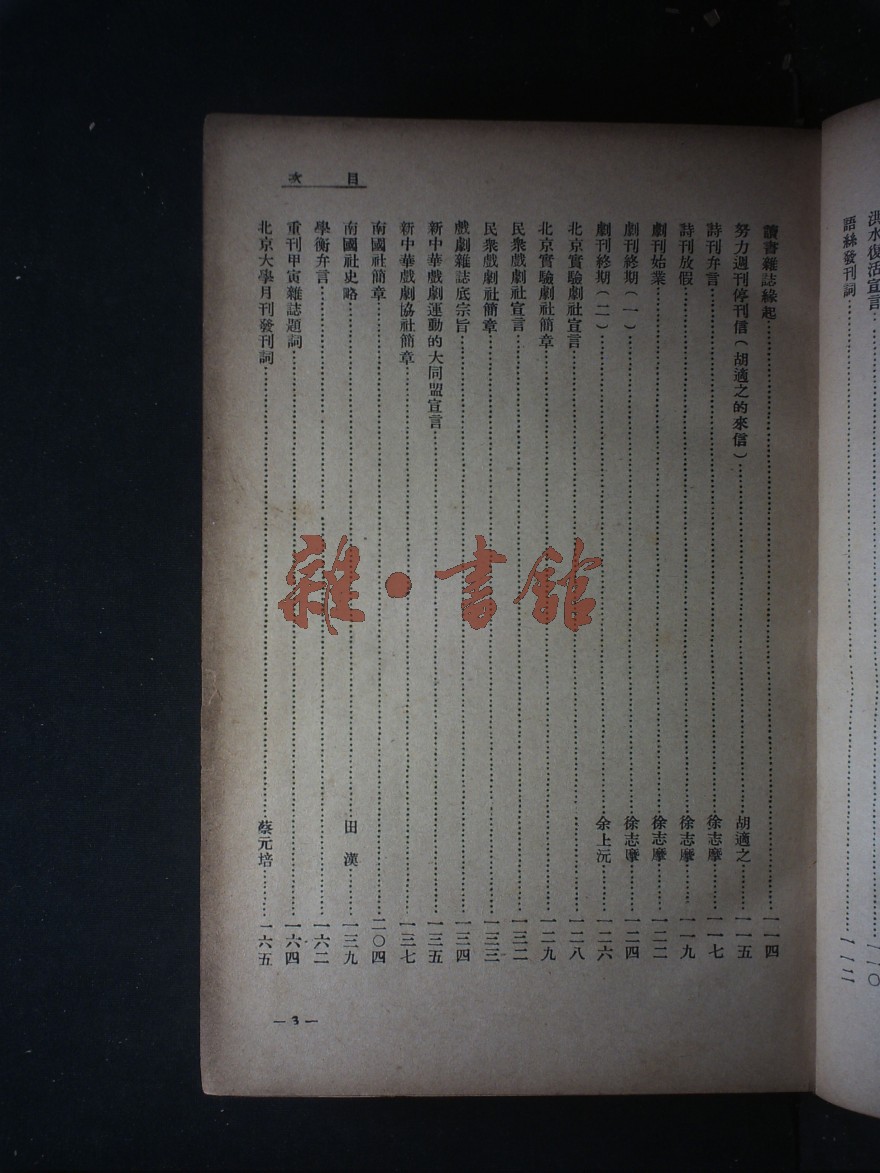 洪水復活宣言…一一〇
語絲發刊詞…一一二
目次
讀書雜誌緣起…一一四
努力週刊停刊信(胡適之的來信)…胡適之…一一五
詩刊弁言…徐志摩…一一七
詩刊放假…徐志摩…一一九
劇刊始業…徐志摩…一二二
劇刊終期(一)…徐志摩…一二四
劇刊終期(二)…余上沅…一二六
北京實驗劇社宣言…一二八
北京實驗劇社簡章…一二九
民衆戲劇社宣言…一三二
民衆戲劇社簡章…一三三
戲劇雜誌底宗旨…一三四
新中華戲劇運動的大同盟宣言…一三五
新中華戲劇協社簡章…一三七
南國社簡章…二〇四
南國社史略…田漢…一三九
學衡弁言…一六二
重刊甲寅雜誌題詞…一六四
北京大學月刊發刊詞…蔡元培…一六五
— 3 —
雜·書館